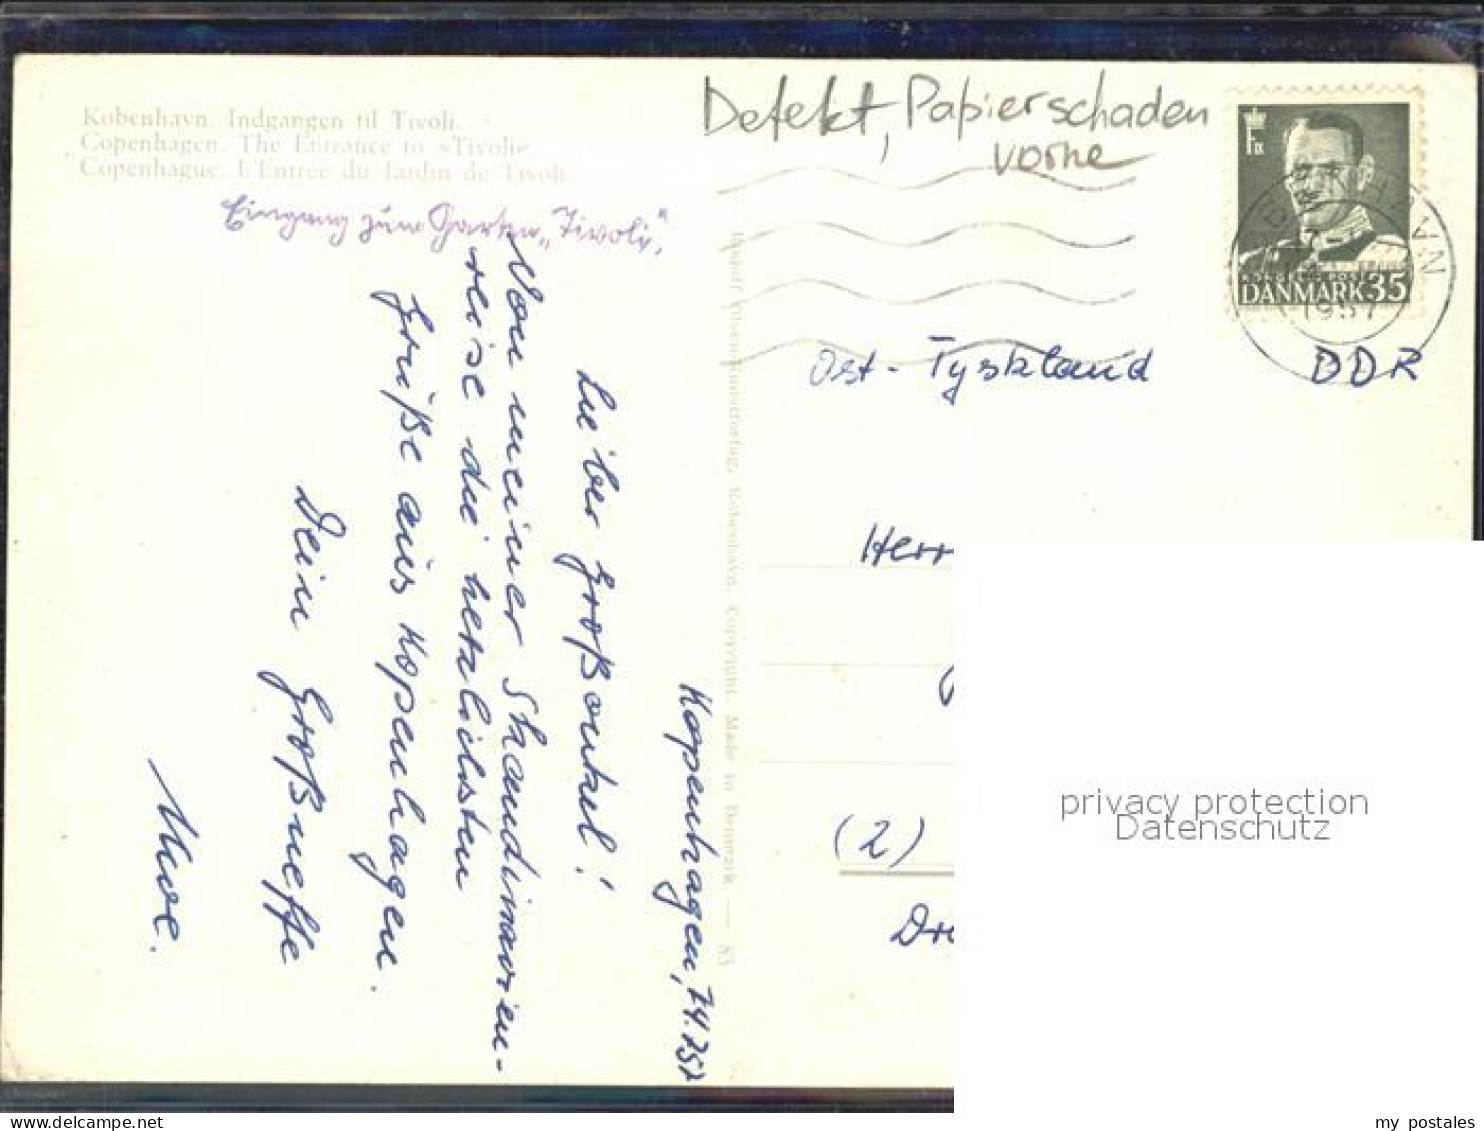 København. Indgangen til Tivoli.
Copenhagen. The Entrance to »Tivoli«.
Copenhague. L'Entrée du Jardin de Tivoli.
Eingang zum Garten „Tivoli".
Defekt, Papierschaden
vorne
DANMARK 35
1957
Ost-Tyskland DDR
Kunstforlag, København. Copyright. Made in Denmark. — 85
Kopenhagen,
Lieber Großonkel!
Von meiner Skandinavien-
reise die herzlichsten
Grüße aus Kopenhagen.
Dein Großneffe
Uwe.
Herr
(2)
privacy protection
Datenschutz
my postales